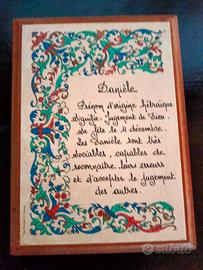 Danièle
Prénom d'origine hébraïque
Signifie: Jugement de Dieu.
Se fête le 11 décembre.
Les Danièle sont très
sociables, capables de
reconnaître leurs erreurs
et d'accepter le jugement
des autres.
subito